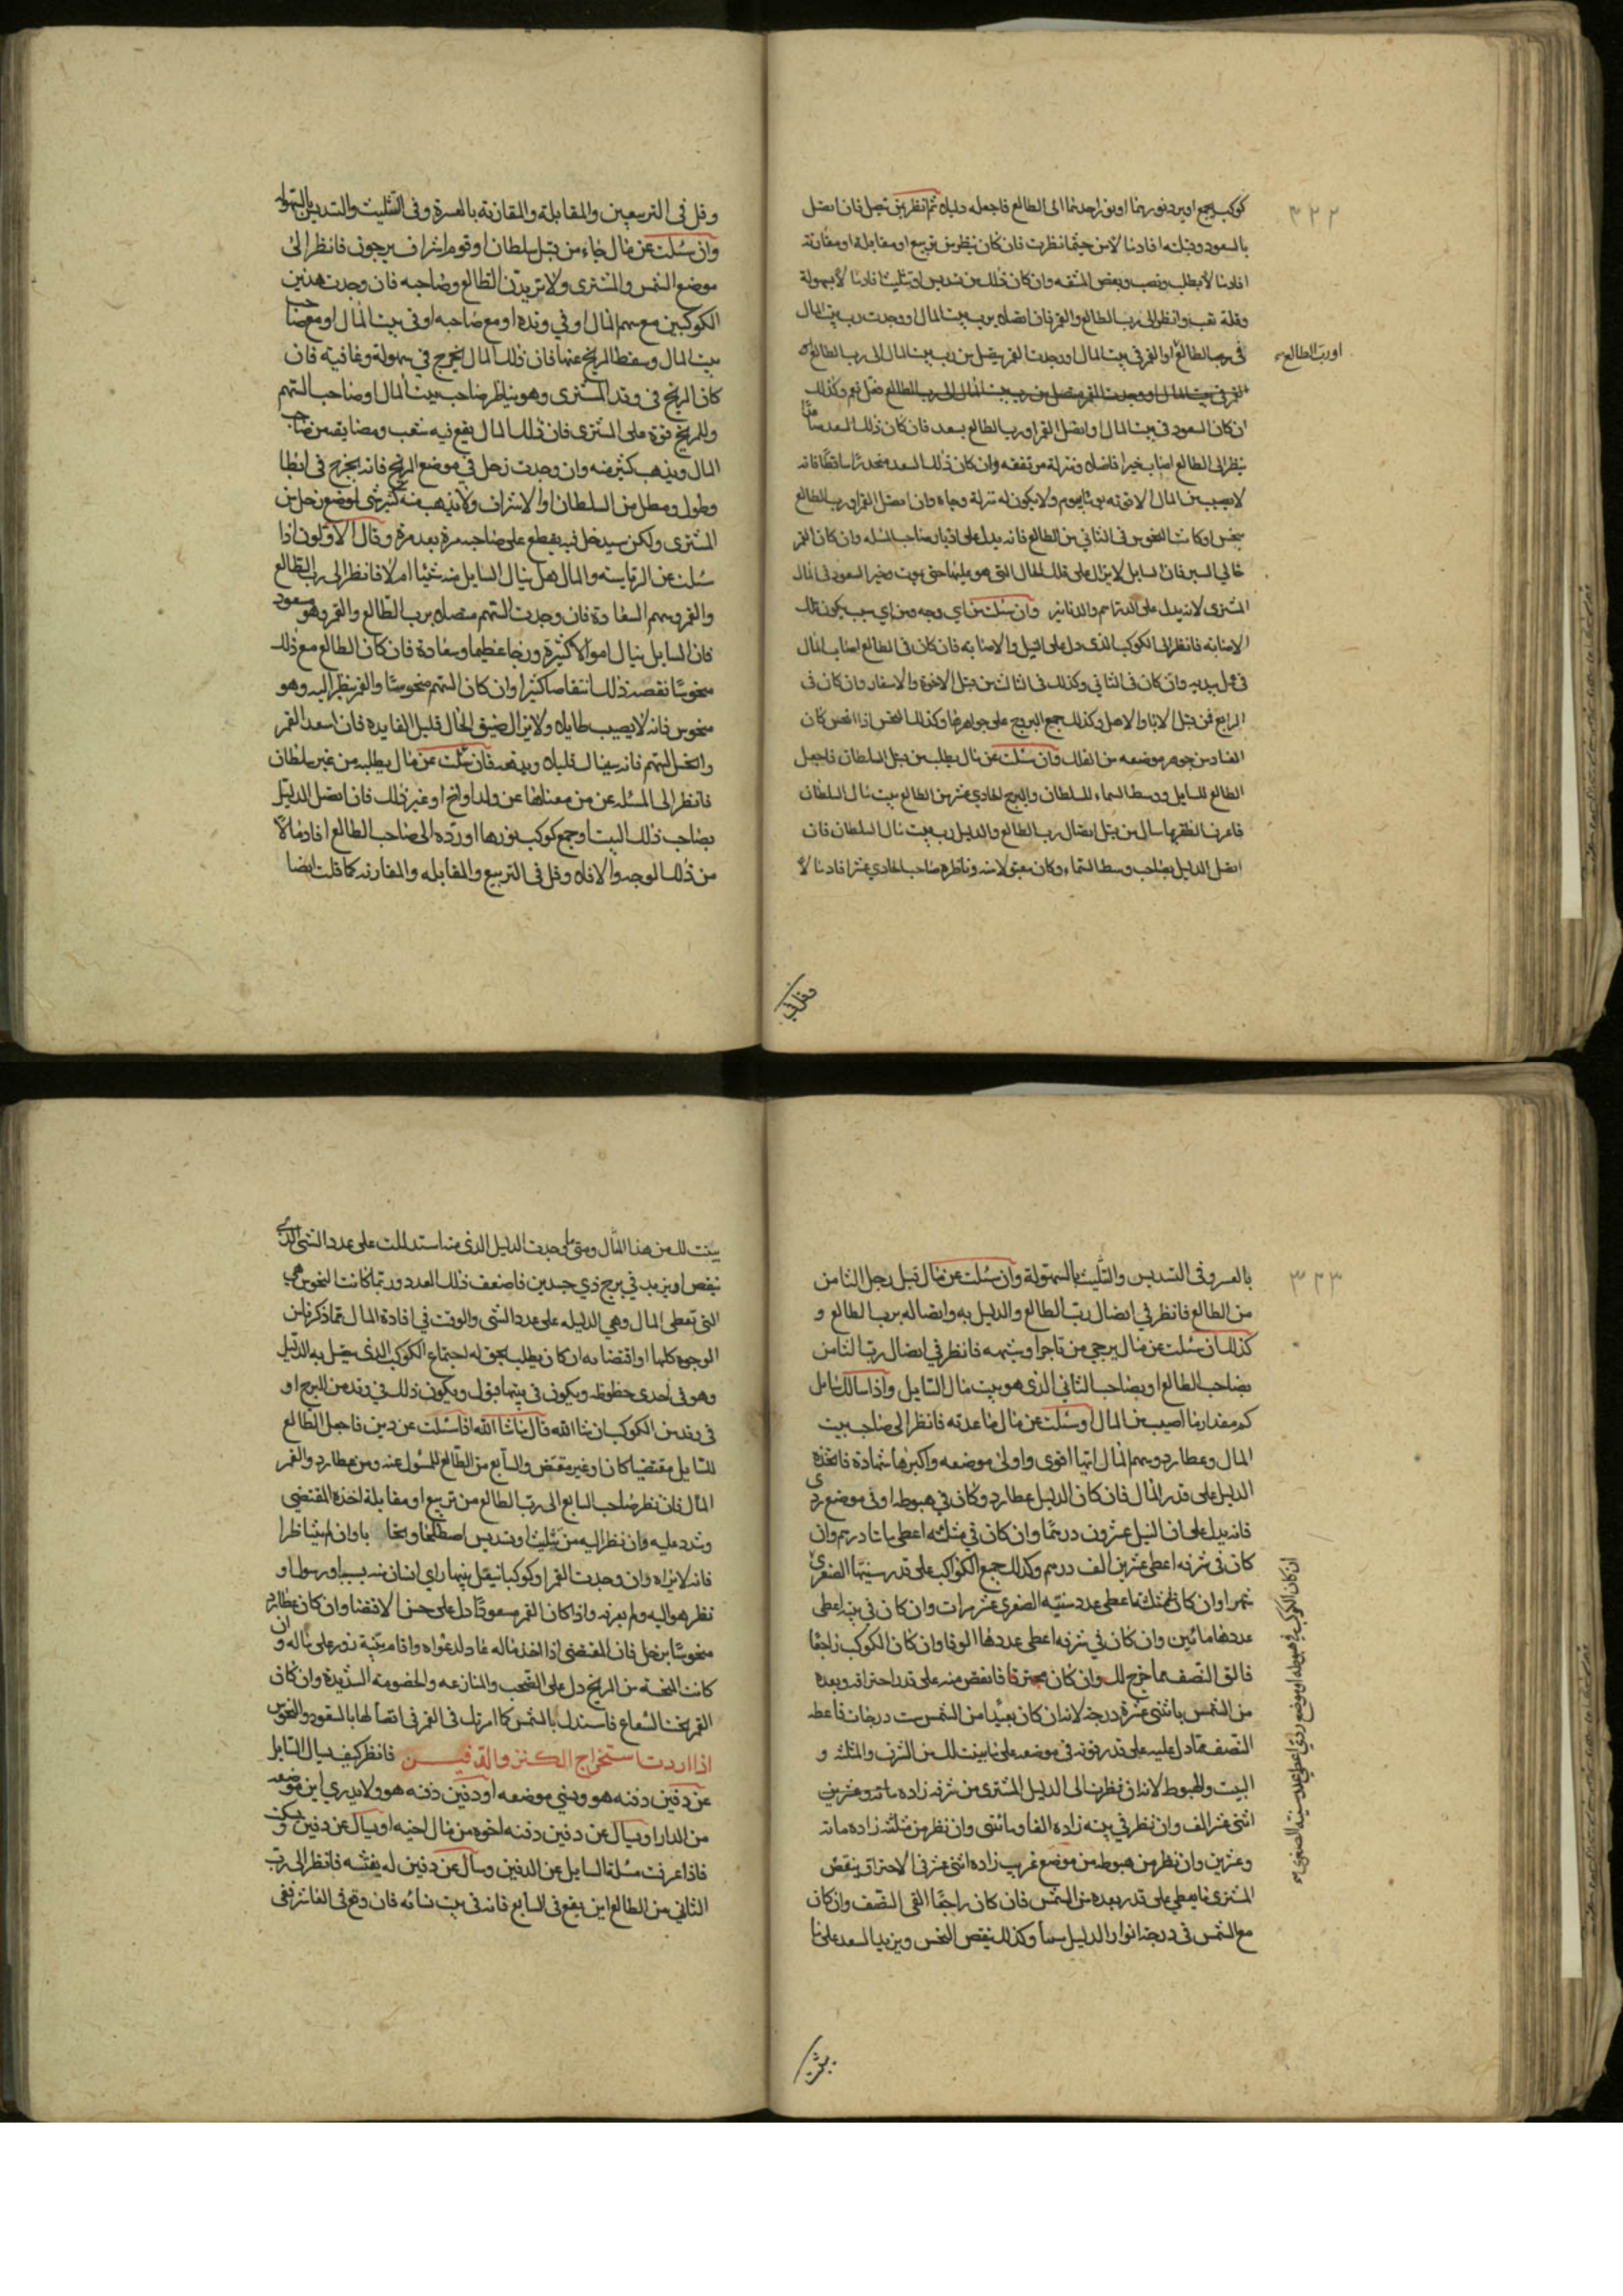 ٣٢٢
كوكب يجمع او يرد نوريهما او نور احدهما الى الطالع فاجعله دليله ثم انظر بمن يتصل فان اتصل
بالسعود وقبلته افاد مالا من حيثما نظرت فان كان ينظر من تربيع او مقابلة او مقارنة
افاد مالا بطلب ونصب وبعض المشقه وان كان ذلك من تسديس او تثليث افاد مالا بسهولة
وقلة تعب وانظر الى رب الطالع والقمر فان اتصلا برب بيت المال او وجدت رب بيت المال
فى الطالع او القمر فى بيت المال او وجدت القمر يتصل من رب بيت المال الى رب الطالع
او رب الطالع
القمر فى بيت المال او وجدت القمر متصل من رب بيت المال الى رب الطالع فقل نعم وكذلك
ان كان السعود فى بيت المال او اتصل القمر او رب الطالع بسعد فان كان ذلك السعد
ينظر الى الطالع اصاب خيرا فاضلا ومنزلة مرتفعه وان كان ذلك السعد منحدرا ساقطا فانه
لا يصيب من المال الا قوته يوما بيوم ولا يكون له منزلة وجاه وان اتصل القمر او رب الطالع
بنحس او كانت النحوس فى الثاني من الطالع فانه يدل على ادبار صاحب المسله وان كان القمر
خالي السير فان السايل لا يزال على تلك الحال التى هو عليها حتى يموت وخير السعود فى المال
المشترى لانه يدل على الدراهم والدنانير وان سئلت من اي وجه ومن اي سبب يكون تلك
الاصابة فانظر الى الكوكب الذى دل على النيل والاصابه فان كان فى الطالع اصاب المال
فى عمل يديه وان كان فى الثاني وكذلك فى الثالث من قبل الاخوة والاسفار وان كان فى
الرابع فمن قبل الابا والاهل وكذلك جميع البروج على جواهرها وكذلك النحس اذا انحس كان
الفساد من جوهر موضعه من الفلك وان سئلت عن مال يطلب من قبل السلطان فاجعل
الطالع للسايل ووسط السماء للسلطان والبرج الحادي عشر من الطالع بيت مال السلطان
فاعرف الظفر بما سال من قبل اتصال رب الطالع والدليل رب بيت مال السلطان فان
اتصل الدليل بصاحب وسط السماء وكان مقبولا منه وناظره صاحب الحادي عشر افاد مالا
وقل فى
وقل فى التربيعين والمقابلة والمقارنة بالعسرة وفى التثليث والتسديس بالسهولة
وان سئلت عن مال جاء من قبل سلطان او قوم اشراف يرجون فانظر الى
موضع الشمس والمشترى ولا تريدن الطالع وصاحبه فان وجدت هذين
الكوكبين مع سهم المال او في وتده او مع صاحبه او فى بيت المال او مع صاحب
بيت المال وسقط المريخ عنهما فان ذلك المال يخرج في سهولة وعافية فان
كان المريخ فى وتد المشترى وهو يناظر صاحب بيت المال او صاحب السهم
وللمريخ قوة على المشترى فان ذلك المال يقع فيه شغب ومضايقه من صاحب
المال ويذهب كثير منه وان وجدت زحل في موضع المريخ فانه يخرج فى ابطا
وطول ومطل من السلطان او الاشراف ولا يذهب منه كثير شى لموضع زحل من
المشترى ولكن سيدخل فيه يقطع على صاحبه مرة بعد مرة وقال الاولون اذا
سئلت عن الرياسه والمال هل ينال السايل منه شيئا ام لا فانظر الى رب الطالع
والقمر وسهم السعادة فان وجدت السهم متصلا برب الطالع والقمر وهو مسعود
فان السايل ينال اموالا كثيرة وربحا عظيما وسعادة فان كان الطالع مع ذلك
منحوسا نقصه ذلك انتقاصا كثيرا وان كان السهم منحوسا والقمر ينظر اليه وهو
منحوس فانه لا يصيب طايلا ولا يزال ضيق الحال قليل الفايده فان اسعد القمر
وانحس السهم فانه سينال قليلا وينقص فان سئلت عن مال يطلبه من غير سلطان
فانظر الى المسئله عن من معناها عن ولد او اخ او غير ذلك فان اتصل الدليل
بصاحب ذلك البيت او جمع كوكب نورهما او رده الى صاحب الطالع افاد مالا
من ذلك الوجه والا فلا وقل فى التربيع والمقابله والمقارنه كما قلت ايضا
٣٢٣
بالعسر وفى التسديس والتثليث بالسهولة وان سئلت عن مال قبل رجل الثامن
من الطالع فانظر في اتصال رب الطالع والدليل به واتصاله برب الطالع و
كذلك ان سئلت عن مال يرجي من تاجر او شبهه فانظر في اتصال رب الثامن
بصاحب الطالع او بصاحب الثاني الذى هو بيت مال السايل واذا سالك سايل
كم مقدار ما اصيب من المال او سئلت عن مال ما عدته فانظر الى صاحب بيت
المال وعطارد وسهم المال ايها اقوى واولى بموضعه واكبرها شهادة فاتخذه
الدليل على قدر المال فان كان الدليل عطارد وكان في هبوطه او في موضع ردى
فانه يدل على ان النيل عشرون درهما وان كان في مثلثه اعطى ماتا درهم وان
كان فى شرفه اعطى عشرين الف درهم وكذلك جميع الكواكب على قدر سنيها الصغرى
ان كان الكوكب في هبوطه او موضع ردى اعطى عدد سنيه الصغرى
ثم او ان كان فى مثلثه اعطى عدد سنيه الصغرى عشر مرات وان كان في بيته اعطى
عددها مائين وان كان في شرفه اعطى عددها الوفا وان كان الكوكب راجعا
فالق النصف مما خرج لك وان كان محترقا فانقص منه على قدر احتراقه وبعده
من الشمس باثنى عشرة درجة لانه ان كان بعيدا من الشمس ست درجات فاعطه
النصف مما دل عليه على قدر قوته فى موضعه على ما بينت لك من الشرف والمثلثه و
البيت والهبوط لانه ان نظر الى الدليل المشترى من شرفه زاده مائه وعشرين
اثنى عشر الف وان نظر في بيته زاده الفا ومائتى وان نظر من مثلثه زاده مائه
وعشرين وان نظر من هبوطه من موضع غريب زاده اثنى عشر فى الاحتراق ينقص
المشترى ما يعطي على قدر بعده من الشمس فان كان راجعا القى النصف وان كان
مع الشمس فى درجة انوار الدليل وكذلك ينقص النحس ويزيد السعد على ما
بينت
بينت لك من هذا المثال ومتى وجدت الدليل الذى منه استدللت على عدد الشى الذى
ينقص او يزيد في برج ذي جسدين فاضعف ذلك العدد وربما كانت النحوس هى
التى تعطى المال وهي الدليله على عدد الشى والوقت في افادة المال مما ذكرنا من
الوجوه كلها او اقتضا به ان كان يطلب بحق له اجتماع الكوكب الذى يتصل به الدليل
وهو فى احدى حظوظه ويكون في بيتها قبول ويكون ذلك في وتد من البرج او
فى وتد من الكوكب ان شا الله قال ما شا الله اذا سئلت عن دين فاجعل الطالع
للسايل مقتضيا كان او غير مقتض والسابع من الطالع للمسؤل عنه ومن عطارد والقمر
المال فان نظر صاحب السابع الى رب الطالع من تربيع او مقابلة اخذه المقتضى
وشدد عليه وان نظر اليه من تثليث او تسديس اصطلحا وتحابا وان لم يتناظرا
فانه لا يراه وان وجدت القمر او كوكبا ينقل بينهما راى انسان منه سببا ورسولا و
نظر هو اليه ولم يعرفه واذا كان القمر مسعودا دل على حسن الاقتضا وان كان عطارد
منحوسا بزحل فان المقتضى اذا اخذ ماله عاد لدعواه واقام بينة زور على ماله وان
كانت النحسة من المريخ دل على الصخب والمنازعه والخصومه الشديدة وان كان
القمر تحت الشعاع فاستدل بالشمس كما امرتك فى القمر فى اتصالها بالسعود والنحوس
اذا اردت استخراج الكنز والدفين فانظر كيف يسال السايل
عن دفين دفنه هو ونسي موضعه او دفين دفنه هو ولا يدري اين موضعه
من الدار او يسال عن دفين دفنه اخوه من مال اخيه او يسال عن دفين
فاذا عرفت مسئلة السايل عن الدفين وسال عن دفين له يفتشه فانظر الى رب
الثاني من الطالع اين يقع فى السابع فانه فى بيت نسائه فان وقع فى العاشر ففى